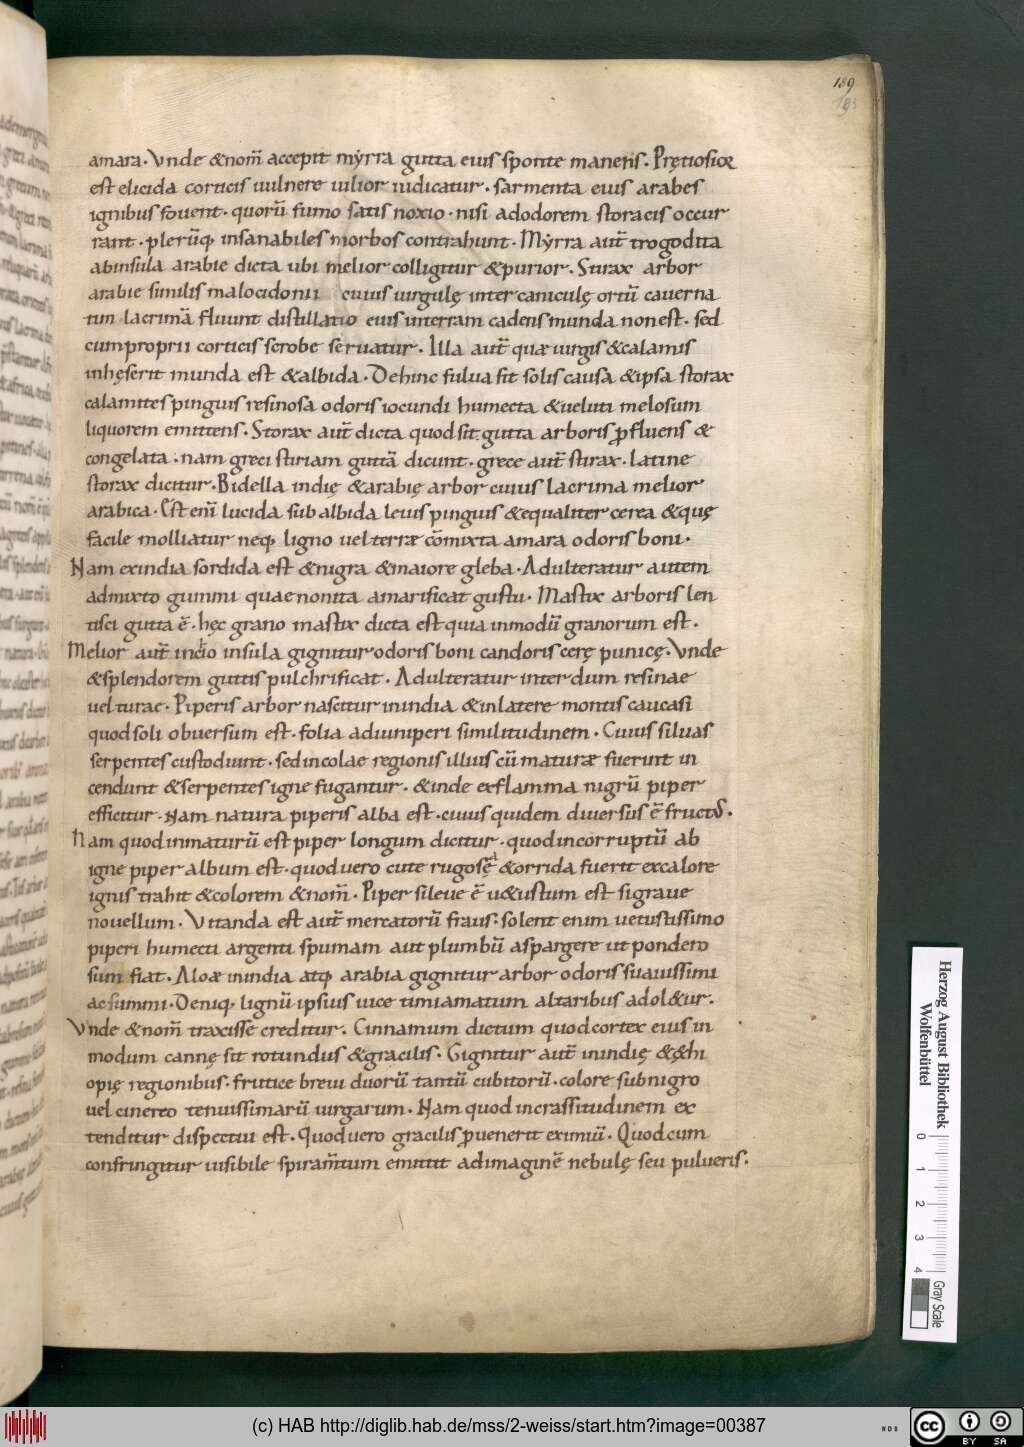 189
193
amara. Vnde &nom̄ accepit myrra gutta eius sponte manens. Pręciosior
est elicida corticis uulnere uilior iudicatur. sarmenta eius arabes
ignibus fouent. quorū fumo satis noxio. nisi adodorem storacis occur
rant. plerūq; insanabiles morbos contrahunt. Myrra aut̄ trogodita
abinsula arabie dicta ubi melior colligitur &purior. Stirax arbor
arabie similis malocidonii cuius uirgulę inter caniculę ortū cauerna
tim lacrimā fluunt distillatio eius interram cadens munda non est. sed
cumproprii corticis scrobe seruatur. Illa aut̄ quæ uirgis &calamis
inhęserit munda est &albida. Dehinc fulua fit solis causa &ipsa storax
calamites pinguis resinosa odoris iocundi humecta &ueluti melosum
liquorem emittens. Storax aut̄ dicta quod sit gutta arboris ꝓfluens &
congelata. nam greci stiriam guttā dicunt. grece aut̄ stirax. latine
storax dicitur. Bidella indię &arabię arbor cuius lacrima melior
arabica. Est eni̅ lucida subalbida leuis pinguis &equaliter cerea &quę
facile molliatur neq; ligno uel terræ cōmixta amara odoris boni.
Nam exindia sordida est &nigra &maiore gleba. Adulteratur autem
admixto gummi quae non ita amarificat gustu. Mastix arboris len
tisci gutta ē. hęc grano mastix dicta est quia inmodū granorum est.
Melior aut̄ inchio insula gignitur odoris boni candoris cerę punicę. Vnde
&splendorem guttis pulchrificat. Adulteratur interdum resinae
uel turae. Piperis arbor nascitur inindia &inlatere montis caucasi
quod soli obuersum est. folia adiuniperi similitudinem. Cuius siluas
serpentes custodiunt. sed incolae regionis illius cū maturæ fuerint in
cendunt &serpentes igne fugantur. &inde exflamma nigrū piper
efficitur. Nam natura piperis alba est. cuius quidem diuersus ē fructus.
Nam quod inmaturū est piper longum dicitur. quod incorruptū ab
igne piper album est. quod uero cute rugosę &orrida fuerit excalore
ignis trahit &colorem &nom̄. Piper sileue ē u&ustum est sigraue
nouellum. Vitanda est aut̄ mercatorū fraus. solent enim uetustissimo
piperi humecti argenti spumam aut plumbū aspargere ut pondero
sum fiat. Aloæ inindia atq; arabia gignitur arbor odoris suauissimi
ac summi. Deniq; lignū ipsius uice timiamatum altaribus adol&ur.
Vnde &nom̄ traxisse creditur. Cinnamum dictum quod cortex eius in
modum cannę sit rotundus &gracilis. Gignitur aut̄ inindię &&hi
opię regionibus. frutice breui duorū tantū cubitorū. colore subnigro
uel cinereo tenuissimarū uirgarum. Nam quod incrassitudinem ex
tenditur dispectui est. Quod uero gracilis ꝓuenerit eximiū. Quod cum
confringitur uisibile spiram̄tum emittit adimaginē nebulę seu pulueris.
Herzog August Bibliothek
Wolfenbüttel
0 1 2 3 4
Gray Scale
(c) HAB http://diglib.hab.de/mss/2-weiss/start.htm?image=00387
NDB
cc BY SA